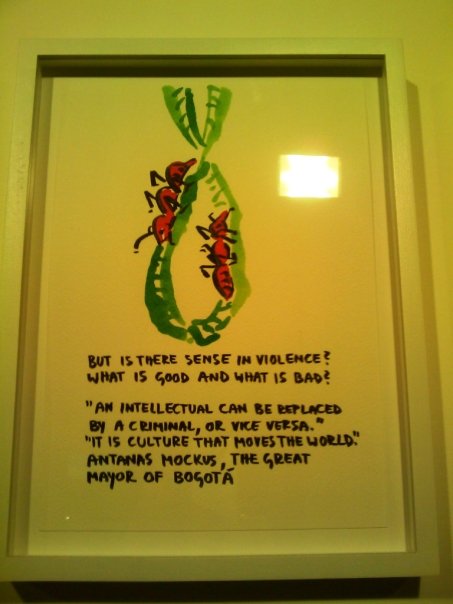 BUT IS THERE SENSE IN VIOLENCE?
WHAT IS GOOD AND WHAT IS BAD?
"AN INTELLECTUAL CAN BE REPLACED
BY A CRIMINAL, OR VICE VERSA."
"IT IS CULTURE THAT MOVES THE WORLD."
ANTANAS MOCKUS, THE GREAT
MAYOR OF BOGOTÁ